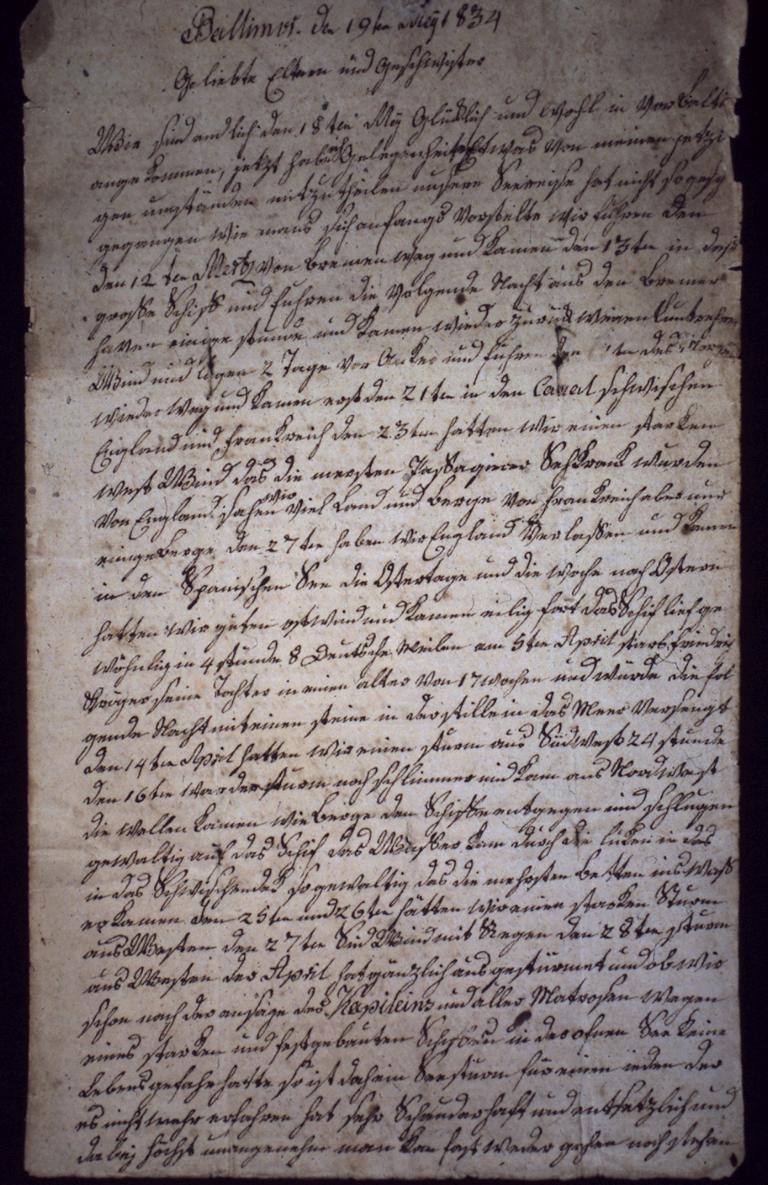 Baltimor. den 19ten May 1834
Geliebte Eltern und Geschwister
Wir sind endlich den 18ten My Glücklich und wohl in Vor Balti
angekommen, jetzt habe ich gelegenheit etwas von meinen jetzi
gen umständen mitzutheilen unsere Seereise hat nicht so
gegangen wie mans sich anfangs Vorstelte wir fuhren den
den 12ten Mertz von Bremen weg und kamen den 13ten in das
große Schiff und fuhren die Volgende Nacht aus den Bremer
haven einige stunde und kamen wieder zurück wegen
Wind und lagen 2 Tage vor Anker und fuhren den ten des
wieder weg und kamen erst den 21ten in den Canal schwischen
England und Frankreich den 23ten hatten wir einen starken
west Wind das die mersten Passagierer Sehkrank wurden
Von England sahen wir viel Land und berge von Frankreich aber nur
einge berge, den 27ten haben wir England Verlaßen und kamen
in den Spanischen See die Ostertage und die woche nach Ostern
hatten wir guten ostwind und kamen eilig fort das Schif lief ge
wöhnlig in 4 stunde 8 Deutsche Meilen am 5ten April starb Friedrich
Krüger seine Tochter in einen alter von 17 wochen und wurde die fol
gende Nacht mit einen steine in der stille in das Meer Versengt
den 14ten April hatten wir einen sturm aus Südwest 24 stunde
den 16ten war der sturm noch schlimmer und kam aus Nordwest
die wellen kamen wie berge den Schiffe entgegen und schlugen
gewaltig auf das Schif das Waßer kam durch die luken in das
in das Schwischendek so gewaltig das die mehrsten betten ins Waß
er kamen den 25ten und 26ten hatten wir einen starken Sturm
aus Westen den 27ten Süd Wind mit Regen den 28ten sturm
aus Westen der April hat gänzlich aus gestürmet und ob wir
schon nach der aussage des Kapiteins und aller Matrosen wegen
eines starken und festgebauten Schiffes in der ofnen See keine
Lebensgefahr hatte so ist doch ein Seesturm für einen jeden der
es nicht mehr erfahren hat sehr Schauderhaft und entsetzlich und
da bey höchst unangenehm man kan fast weder gehen noch stehen